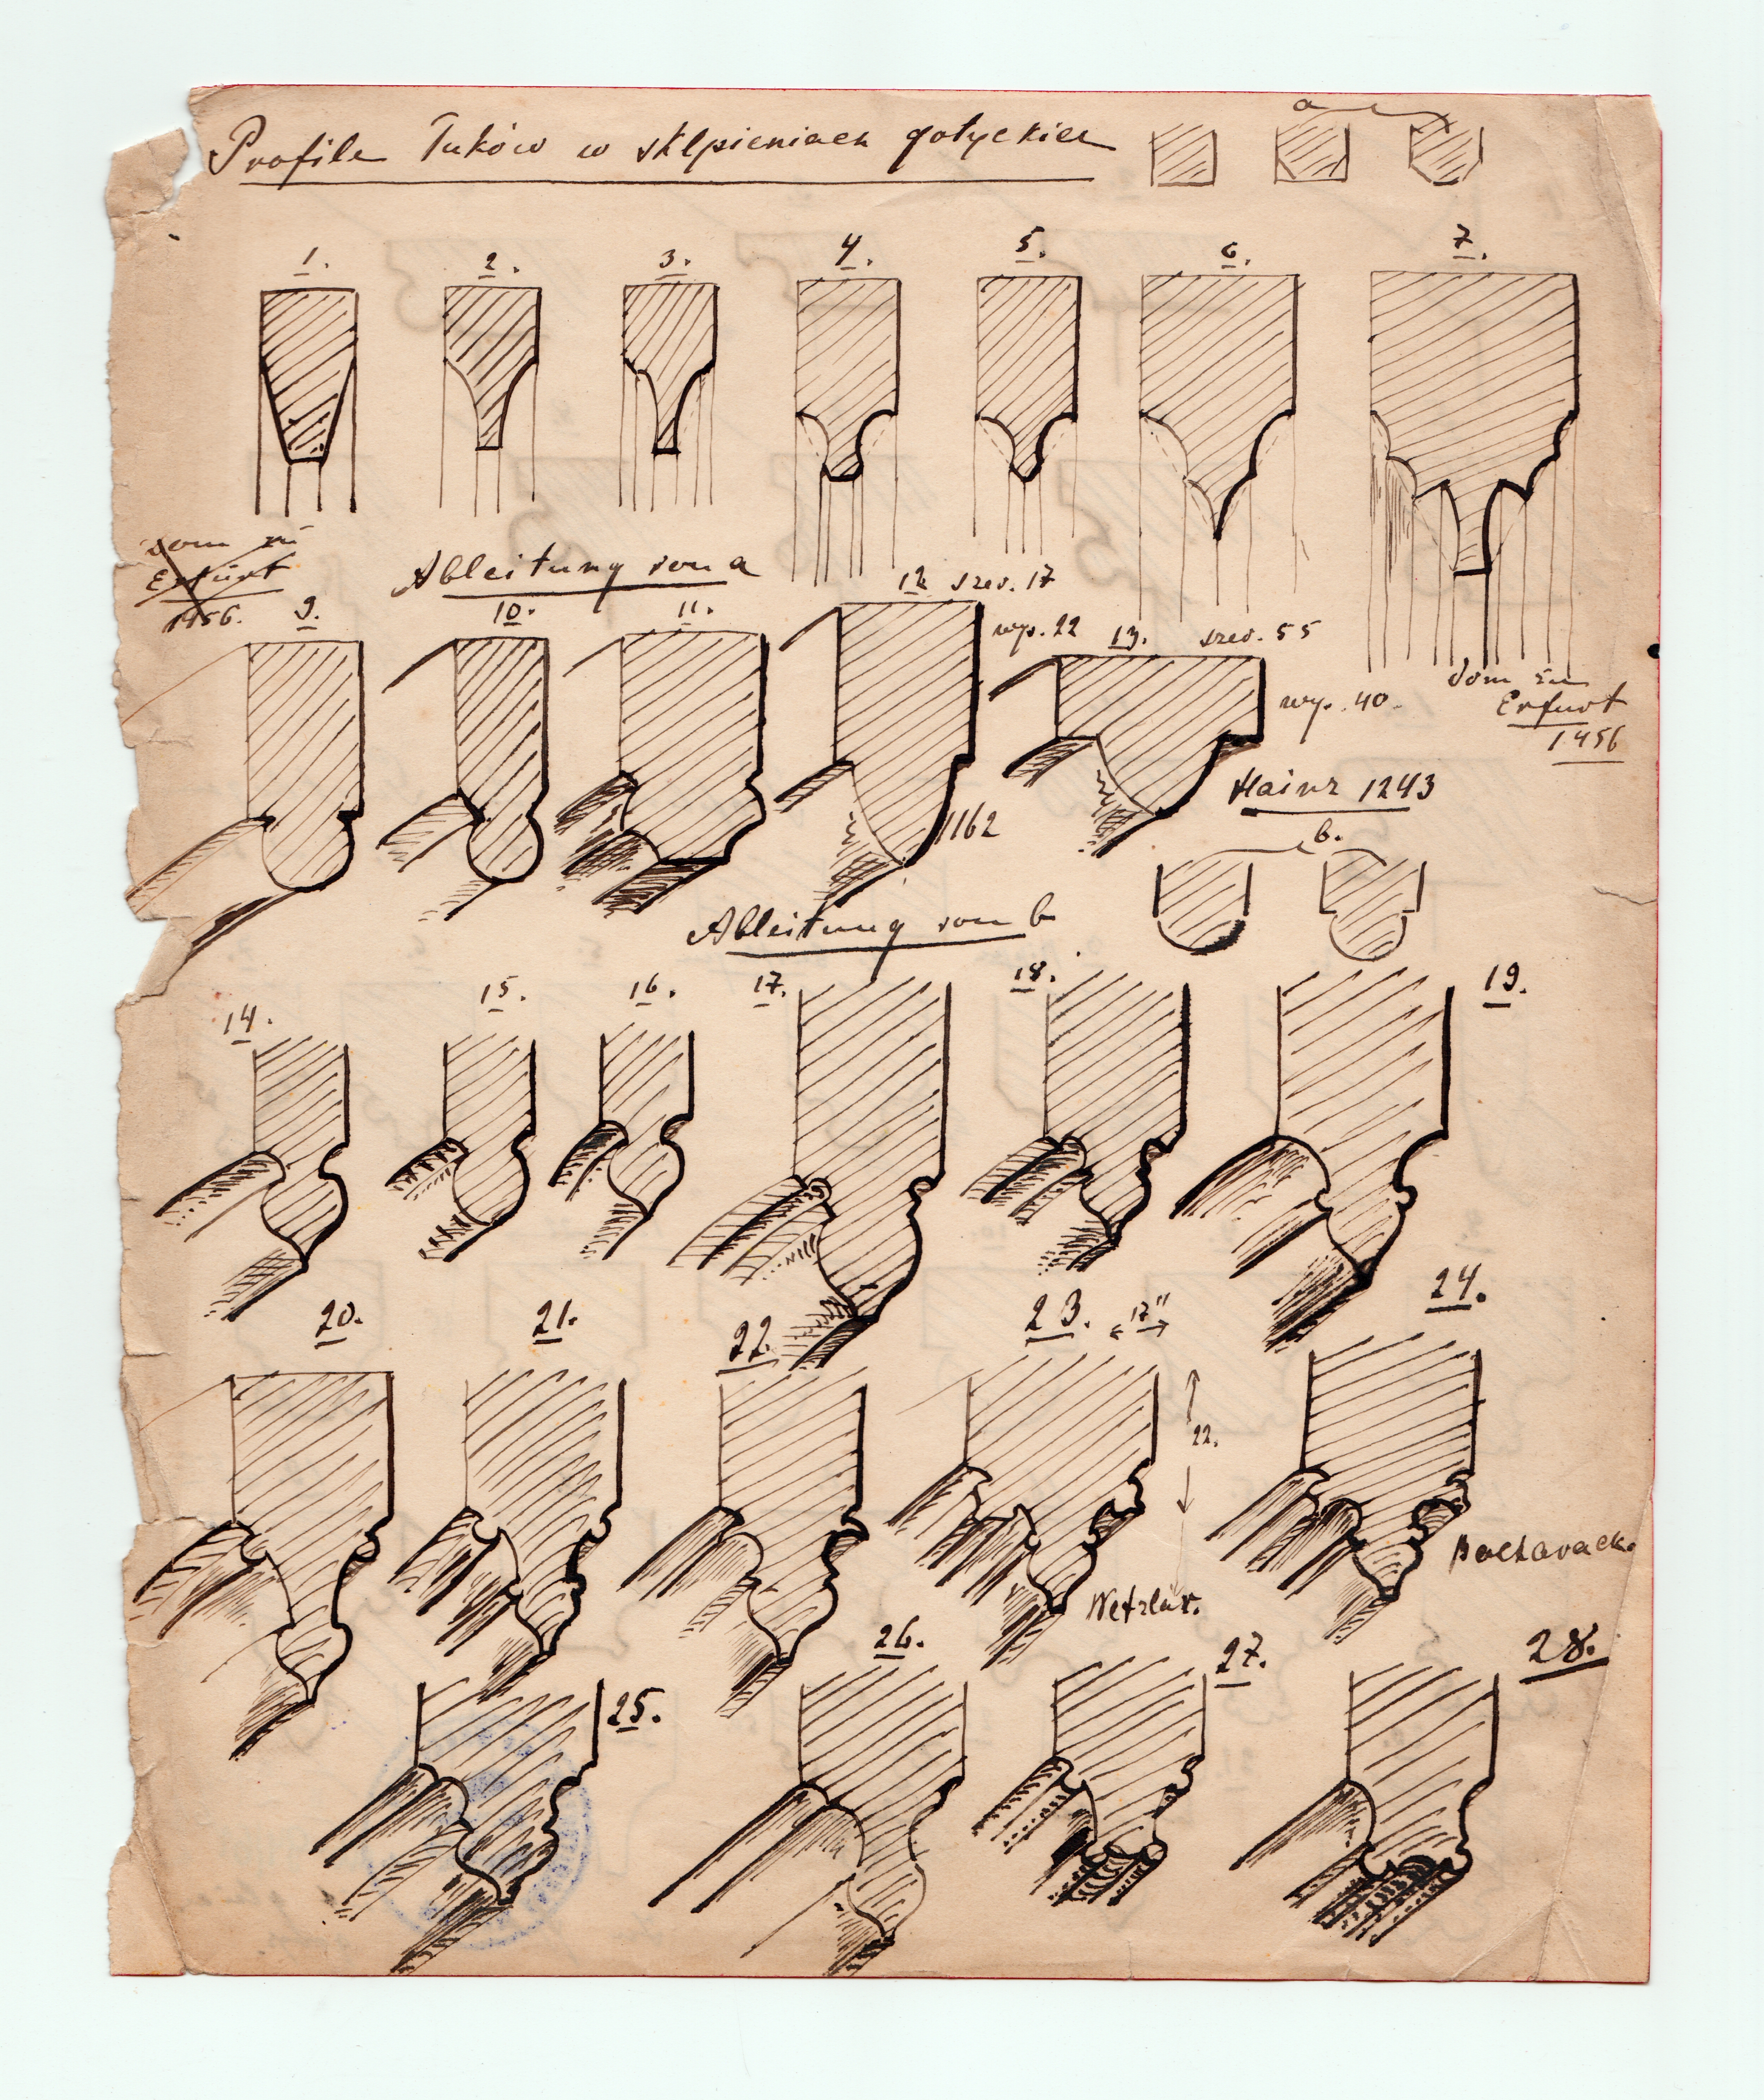 Profile łuków w sklpieniach gotyckich
a
1. 2. 3. 4. 5. 6. 7.
Dom zu
Erfurt
1456.
Ableitung von a
9. 10. 11. 12 szer. 17
wys. 22
13. szer. 55
wys. 40.
Dom zu
Erfurt
1456
1162
Mainz 1243
b.
Ableitung von b
14. 15. 16. 17. 18. 19.
20. 21. 22. 23. 17" 24.
22.
Wetzlar.
Bacharach.
25. 26. 27. 28.